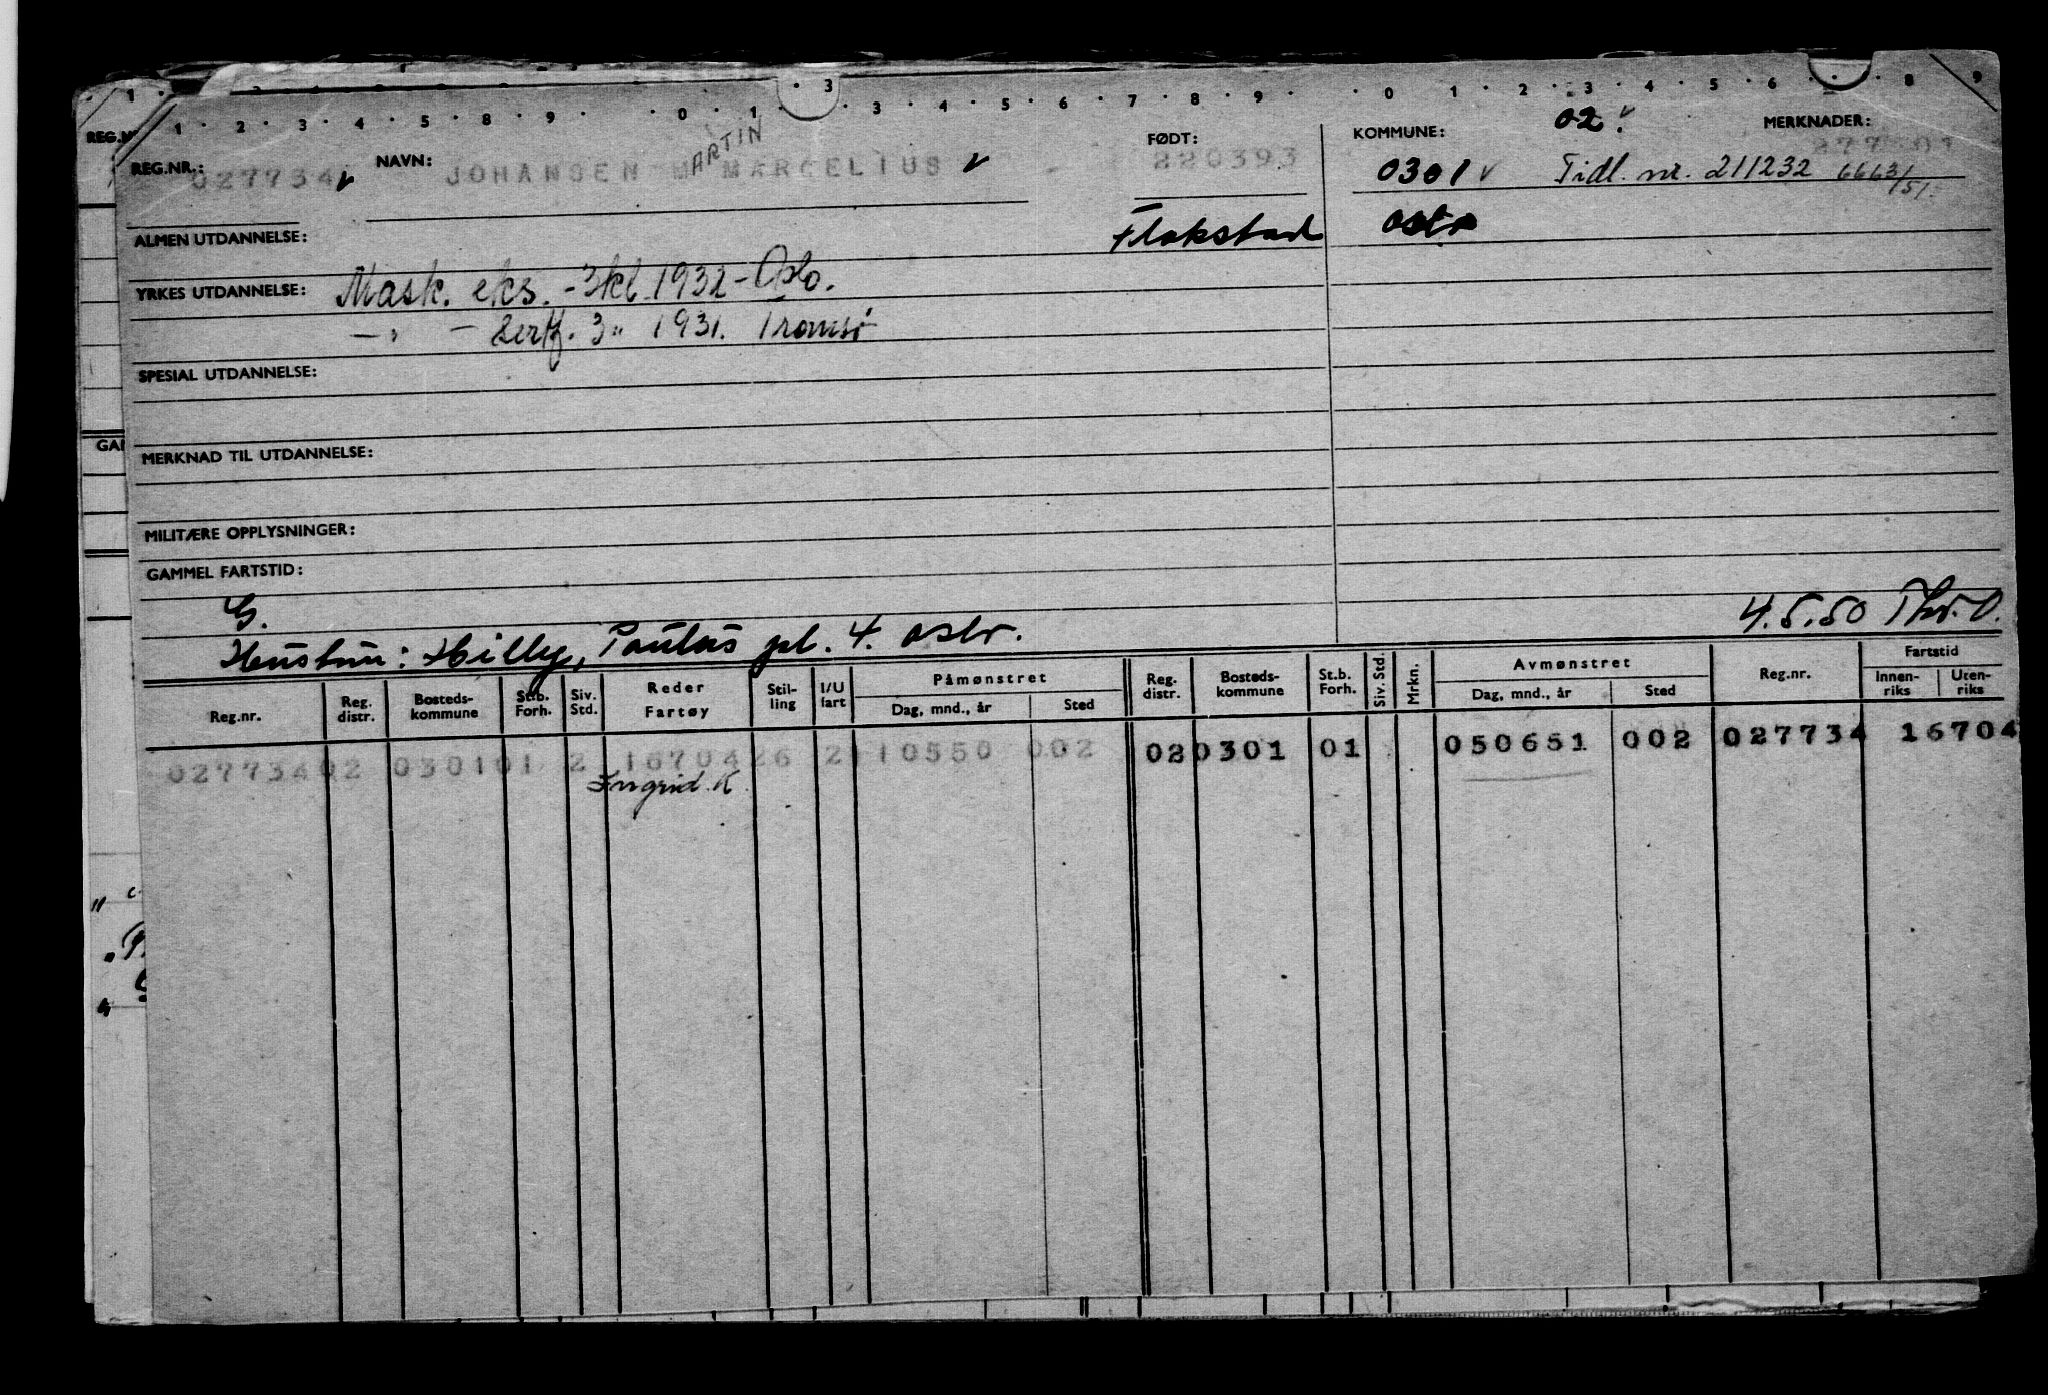 REG.NR.: 027734 NAVN: JOHANSEN MARTIN MARCELIUS FØDT: 220393 KOMMUNE: 0301 02. MERKNADER:
Tidl. nr. 211232 6663/51.
ALMEN UTDANNELSE: Flakstad Oslo
YRKES UTDANNELSE: Mask. eks. - 3kl. 1932 - Oslo.
— " — Sertf. 3 " 1931. Tromsö
SPESIAL UTDANNELSE:
MERKNAD TIL UTDANNELSE:
MILITÆRE OPPLYSNINGER:
GAMMEL FARTSTID:
G.
Hustru: Hilly, Paulus pl. 4. Oslo. 4.5.50
Reg.nr. Reg. distr. Bosteds-kommune St.b. Forh. Siv. Std. Reder Fartøy Stil-ling I/U fart Påmønstret Dag, mnd., år Sted Reg. distr. Bosteds-kommune St.b. Forh. Siv. Std. Mrkn. Avmønstret Dag, mnd., år Sted Reg.nr. Fartstid Innen-riks Uten-riks
027734 02 0301 01 2 16704 26 2 110550 002 02 0301 01 050651 002 027734 16704
Ingrid. K